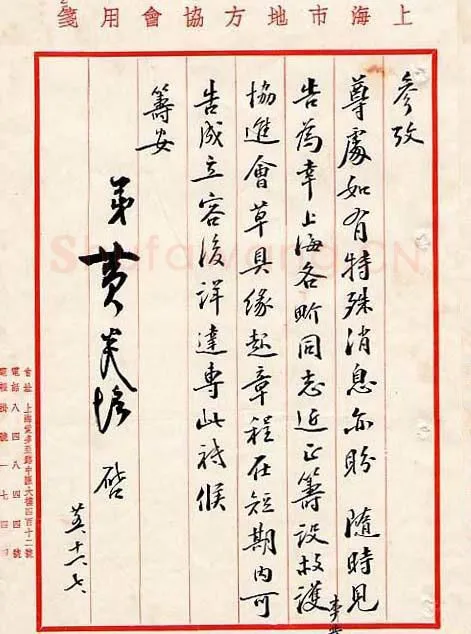 上海市地方協會用箋
參攷
尊處如有特殊消息亦盼 隨時見
告為幸上海各界同志近正籌設救護事業
協進會草具緣起章程在短期內可
告成立容後詳達專此祗候
籌安
弟黃炎培 啓
廿五、十一、七
會址 上海愛多亞路中匯大樓四百十二號
電話八四八四四號
電報掛號一七四四